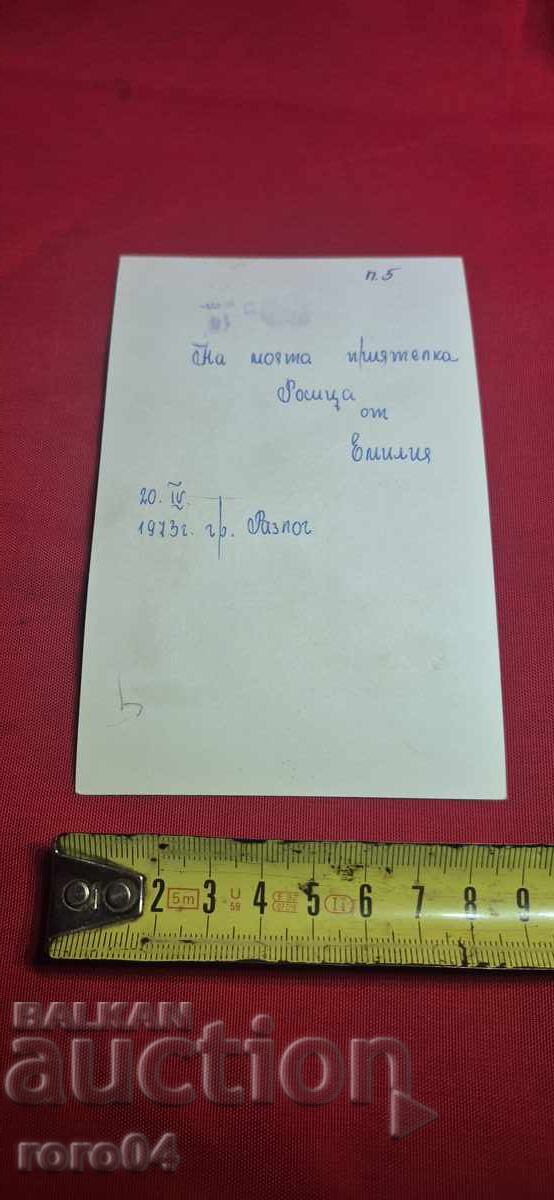 п.5
На моята приятелка
Росица
от
Емилия
20. IV.
1973г. гр. Разлог
2 5m 3 U 59 4 5 II 6 7 8 9
BALKAN
auction
roro04